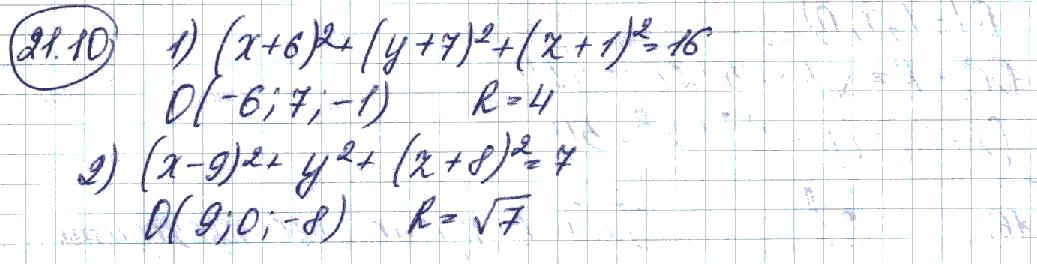 21.10 1) (x+6)²+(y+7)²+(z+1)²=16
O(-6; 7; -1) R=4
2) (x-9)²+y²+(z+8)²=7
O(9; 0; -8) R=√7